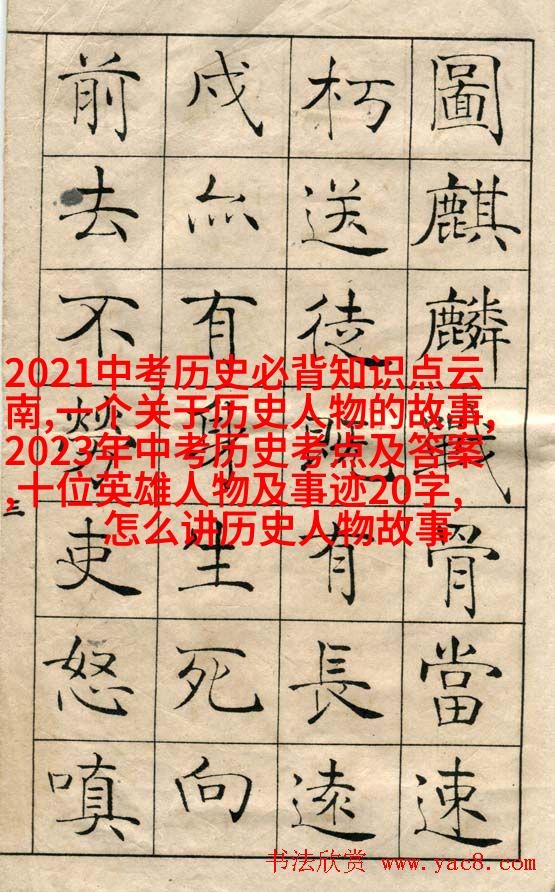 圖麒麟戰骨當速
朽送徒既有長遠
戍亦有身生死向
前去不勞吏怒嗔
三
2021中考历史必背知识点云
南,一个关于历史人物的故事,
2023年中考历史考点及答案
,十位英雄人物及事迹20字,
怎么讲历史人物故事
书法欣赏 www.yac8.com